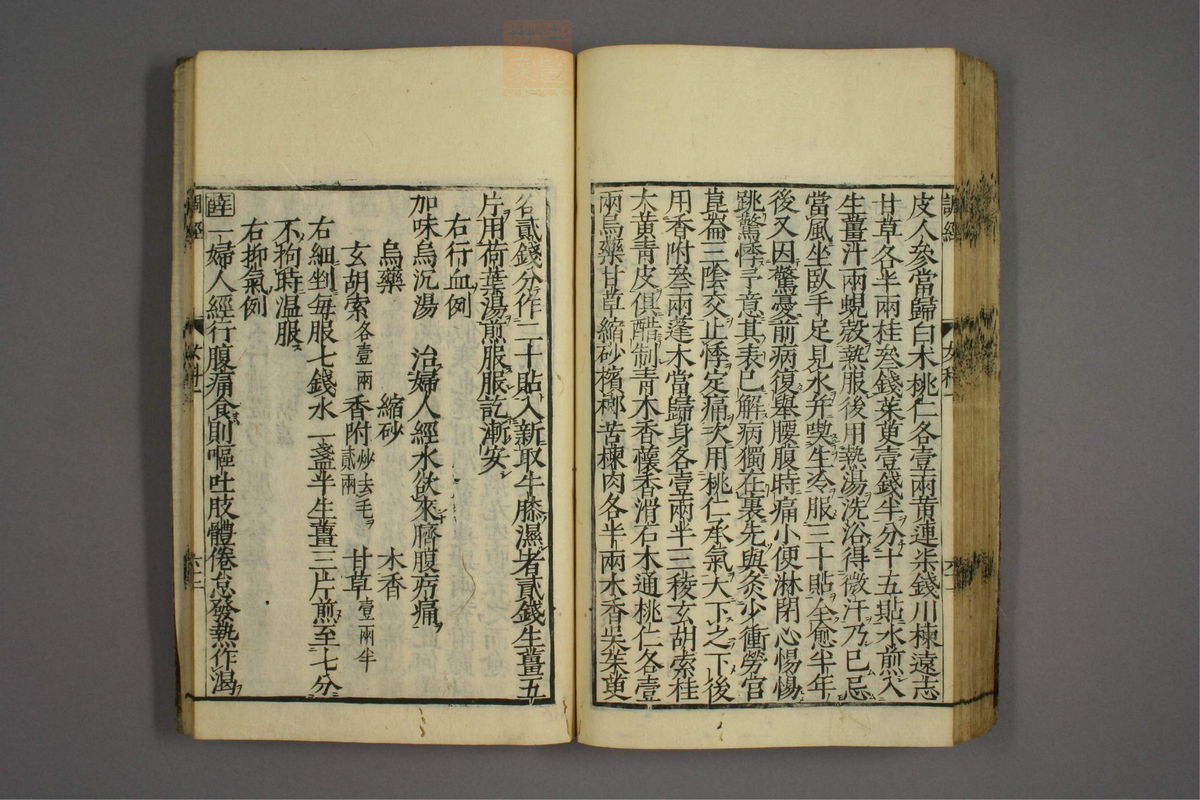 皮人參當歸白木桃仁各壹兩黃連柒錢川楝遠志
甘草各半兩桂叁錢茱萸壹錢半分十五貼水煎入
生薑汁兩蜆殼熱服後用熱湯洗浴得微汗乃已忌
當風坐臥手足見水并喫生冷服三十貼全愈半年
後又因驚憂前病復舉腰腹時痛小便淋閉心惕惕
跳驚悸予意其表已解病獨在裏先與灸少衝勞宮
崑崙三陰交止悸定痛次用桃仁承氣大下之下後
用香附叁兩蓬木當歸身各壹兩半三稜玄胡索桂
大黃青皮俱醋制青木香蘹香滑石木通桃仁各壹
兩烏藥甘草縮砂檳榔苦楝肉各半兩木香吳茱萸
各貳錢分作二十貼入新取牛膝濕者貳錢生薑五
片用荷葉湯煎服服訖漸安
右行血例
加味烏沉湯 治婦人經水欲來臍腹㽲痛
烏藥 縮砂 木香
玄胡索各壹兩 香附炒去毛貳兩 甘草壹兩半
右細剉每服七錢水一盞半生薑三片煎至七分
不拘時溫服
右抑氣例
一婦人經行腹痛食則嘔吐肢體倦怠發熱作渴